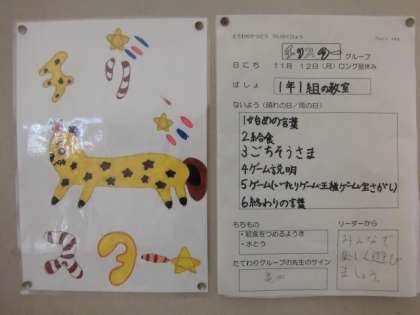 キリスター
たてわりかつどう けいかくひょう
キリスター グループ
日にち 11月 12日(月)ロング昼休み
ばしょ 1年1組の教室
ないよう(晴れの日/雨の日)
1始めの言葉
2給食
3ごちそうさま
4ゲーム説明
5ゲーム(いすとりゲーム王様ゲーム宝さがし)
6終わりの言葉
もちもの
・給食をつめるようき
・水とう
リーダーから
みんなで
楽しく遊び
ましょう。
たてわりグループの先生のサイン